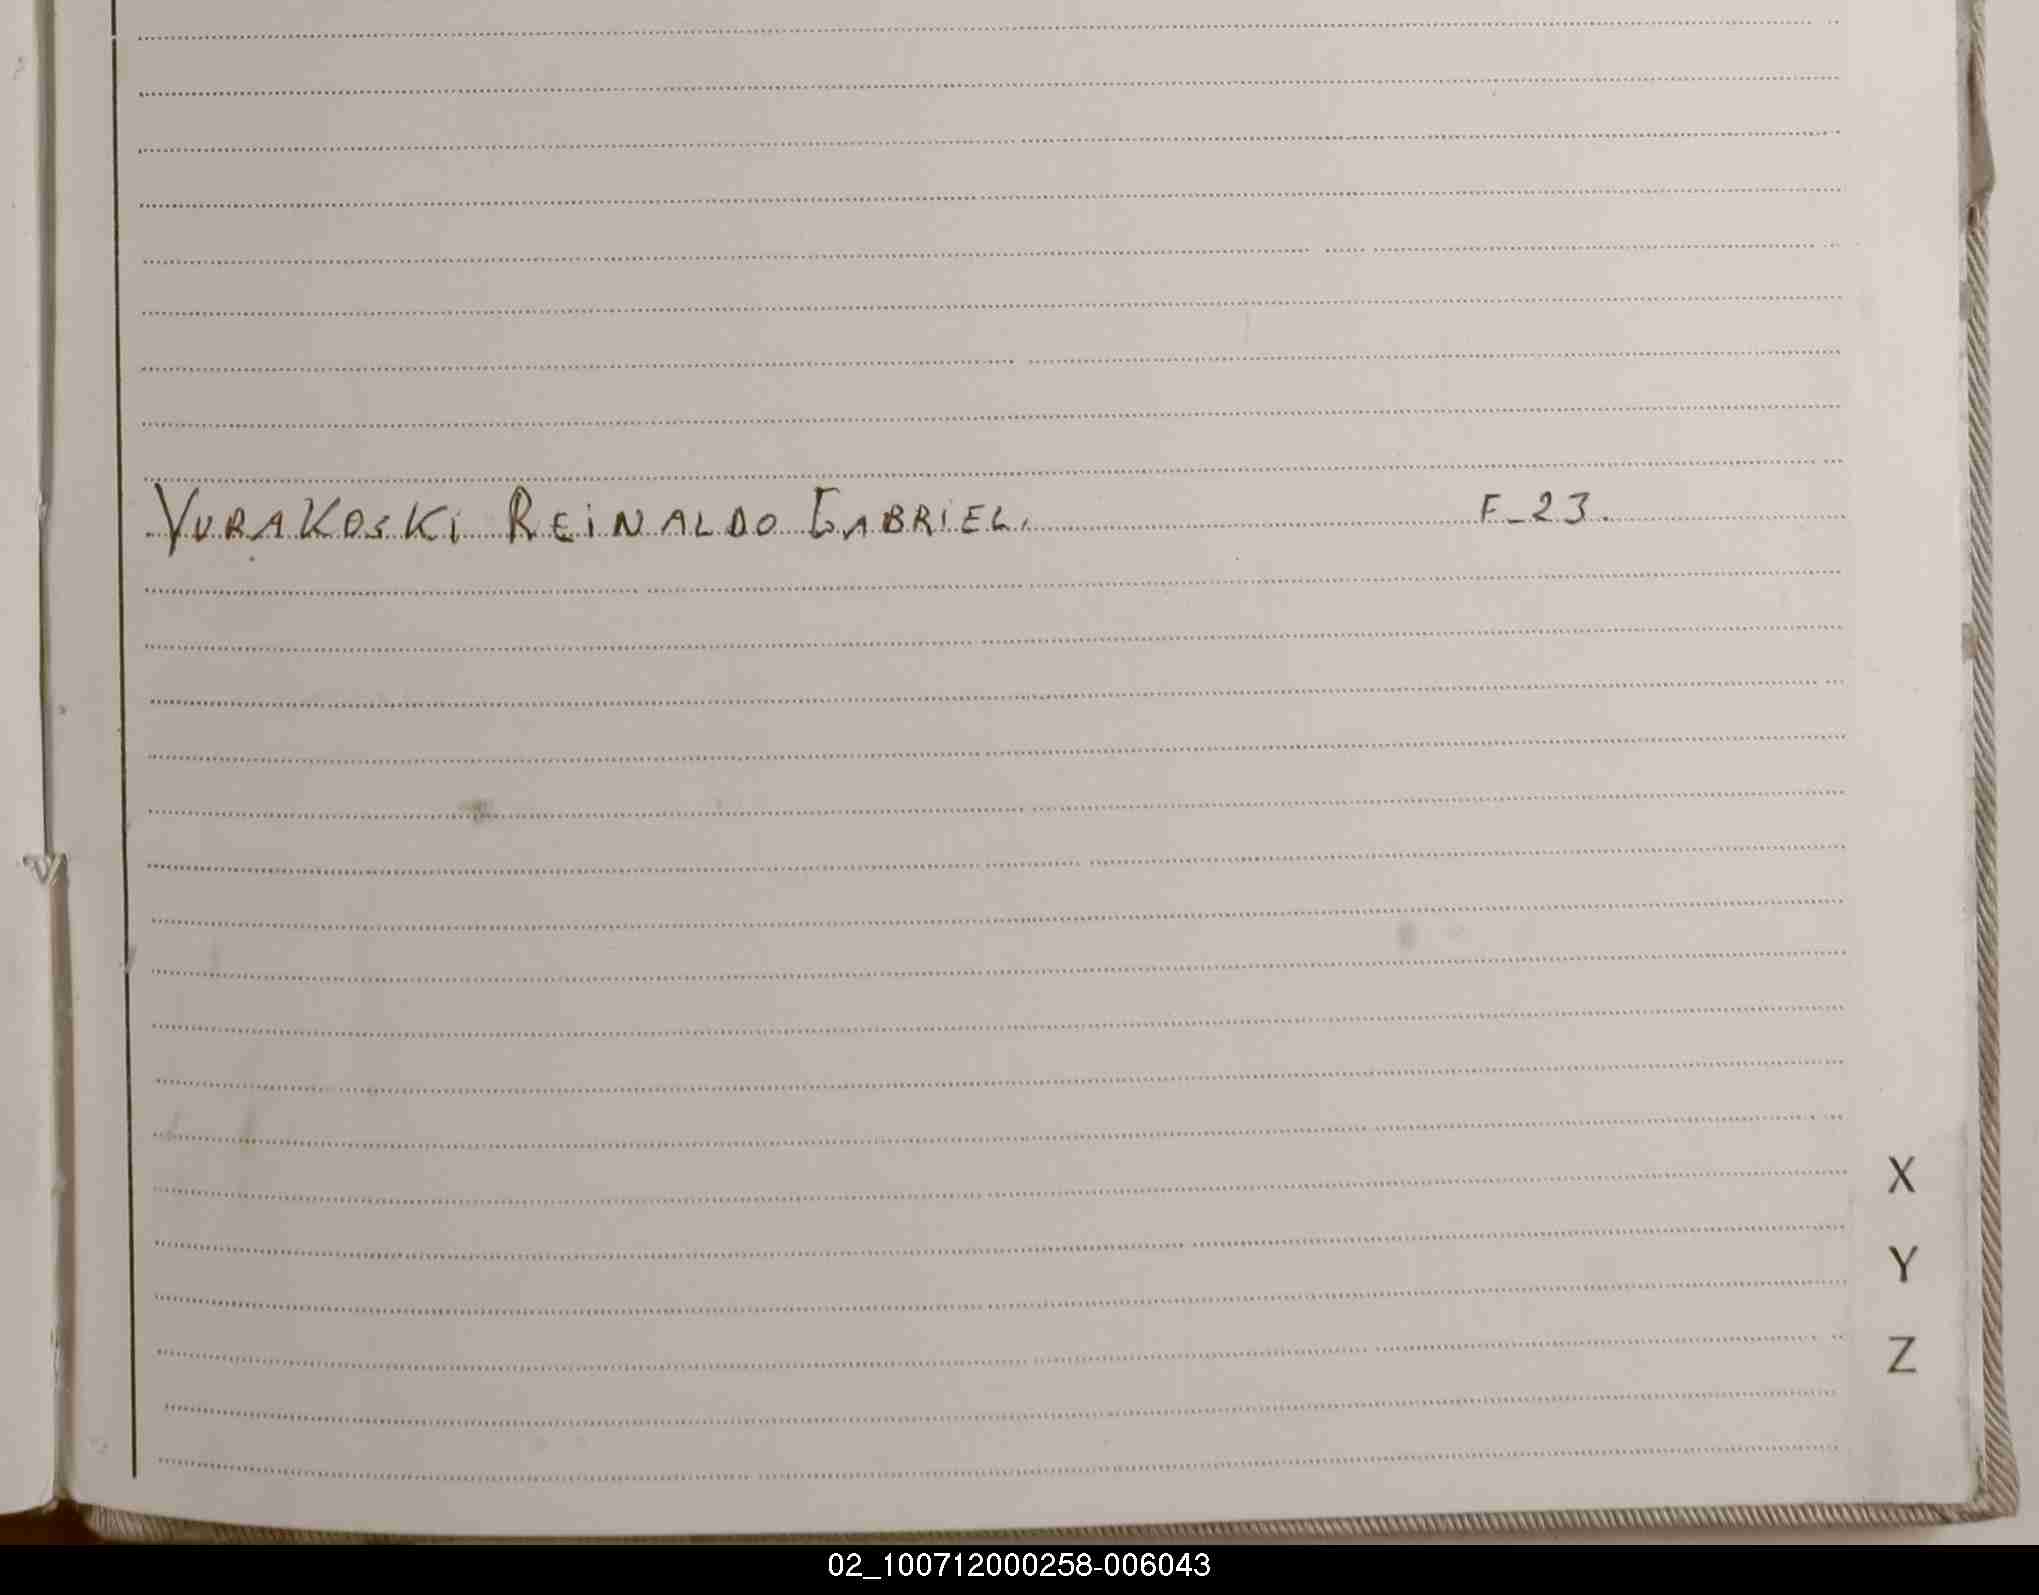 YURAKOSKi REiNALDO GABRiEL. F_23.
X
Y
Z
02_100712000258-006043